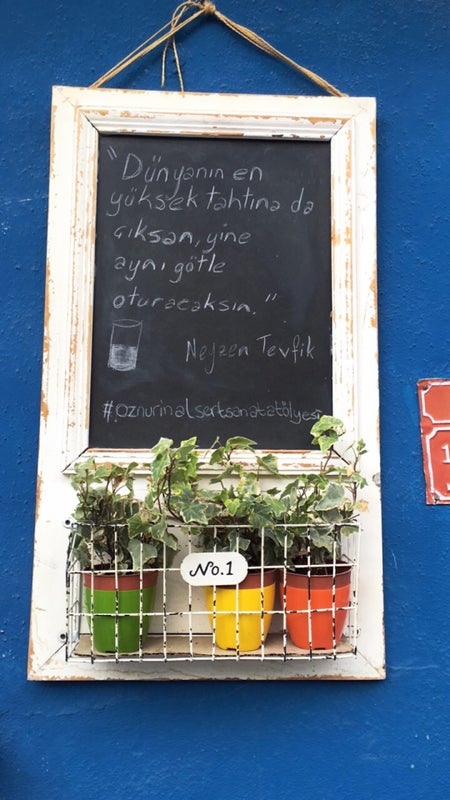 "Dünyanın en
yüksek tahtına da
çıksan, yine
aynı götle
oturacaksın."
Neyzen Tevfik
#öznurinalsertsanatatölyesi
No.1
1